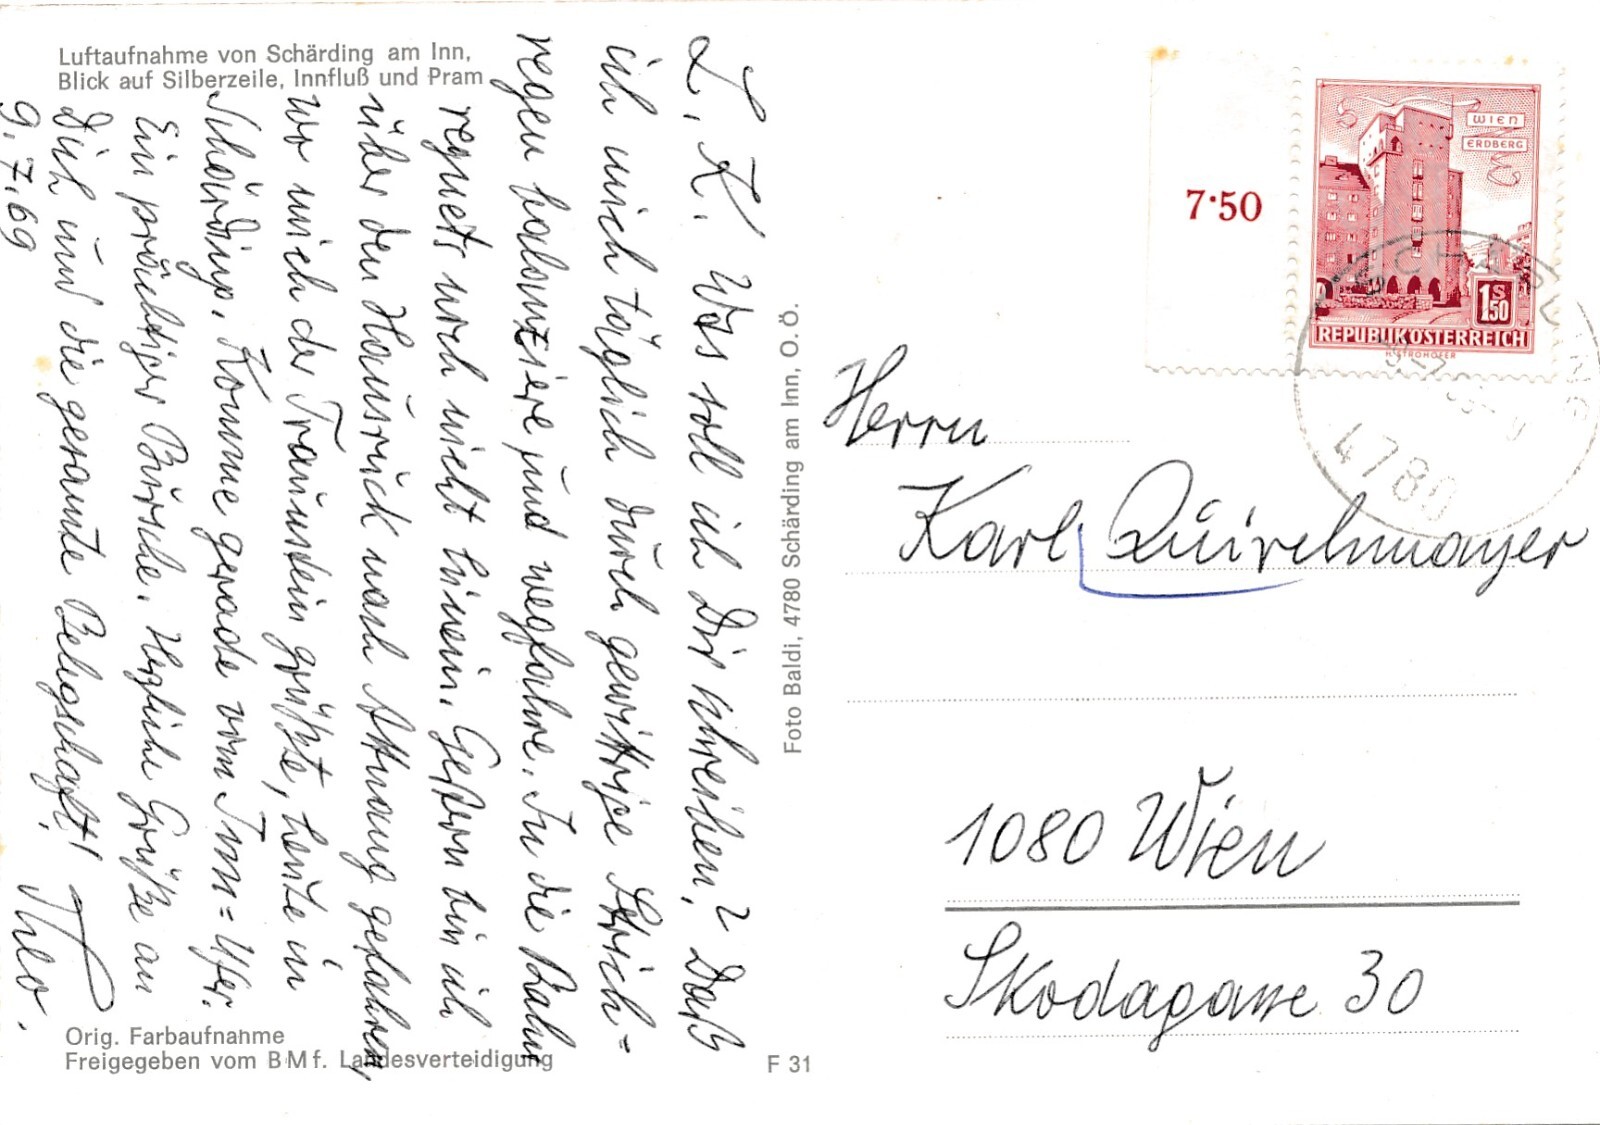 Luftaufnahme von Schärding am Inn,
Blick auf Silberzeile, Innfluß und Pram
L. K. Was soll ich Dir schreiben? Daß
ich mich täglich durch gewittrige Strich=
regen balanziere und wegfahre. In die Bahn
regnets noch nicht hinein. Gestern bin ich
über den Hausruck nach Attnang gefahren,
wo mich der Traunstein grüßte, heute in
Schärding. Komme gerade vom Inn=Ufer.
Ein prächtiger Bursche. Herzliche Grüße an
Dich und die gesamte Belegschaft!
9.7.69
Theo.
Orig. Farbaufnahme
Freigegeben vom BMf. Landesverteidigung
F 31
Foto Baldi, 4780 Schärding am Inn, O. Ö.
7·50
WIEN
ERDBERG
1 S 50
REPUBLIK ÖSTERREICH
H. STROHOFER
SCHÄRDING
4780
Herrn
Karl Quirchmayer
1080 Wien
Skodagasse 30